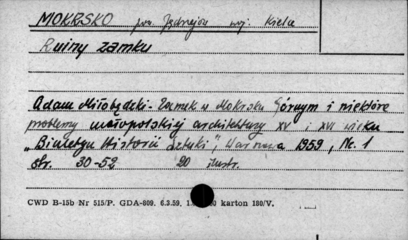 MOKRSKO pow. Jędrzejów woj. Kielce
Ruiny zamku
Adam Miłobędzki - Zamek w Mokrsku Górnym i niektóre
problemy małopolskiej architektury XV i XVI wieku
„Biuletyn Historii Sztuki", Warszawa 1959, Nr. 1
str. 30-52 20 ilustr.
CWD B-15b Nr 515/P. GDA-809. 6.3.59. karton 180/V.